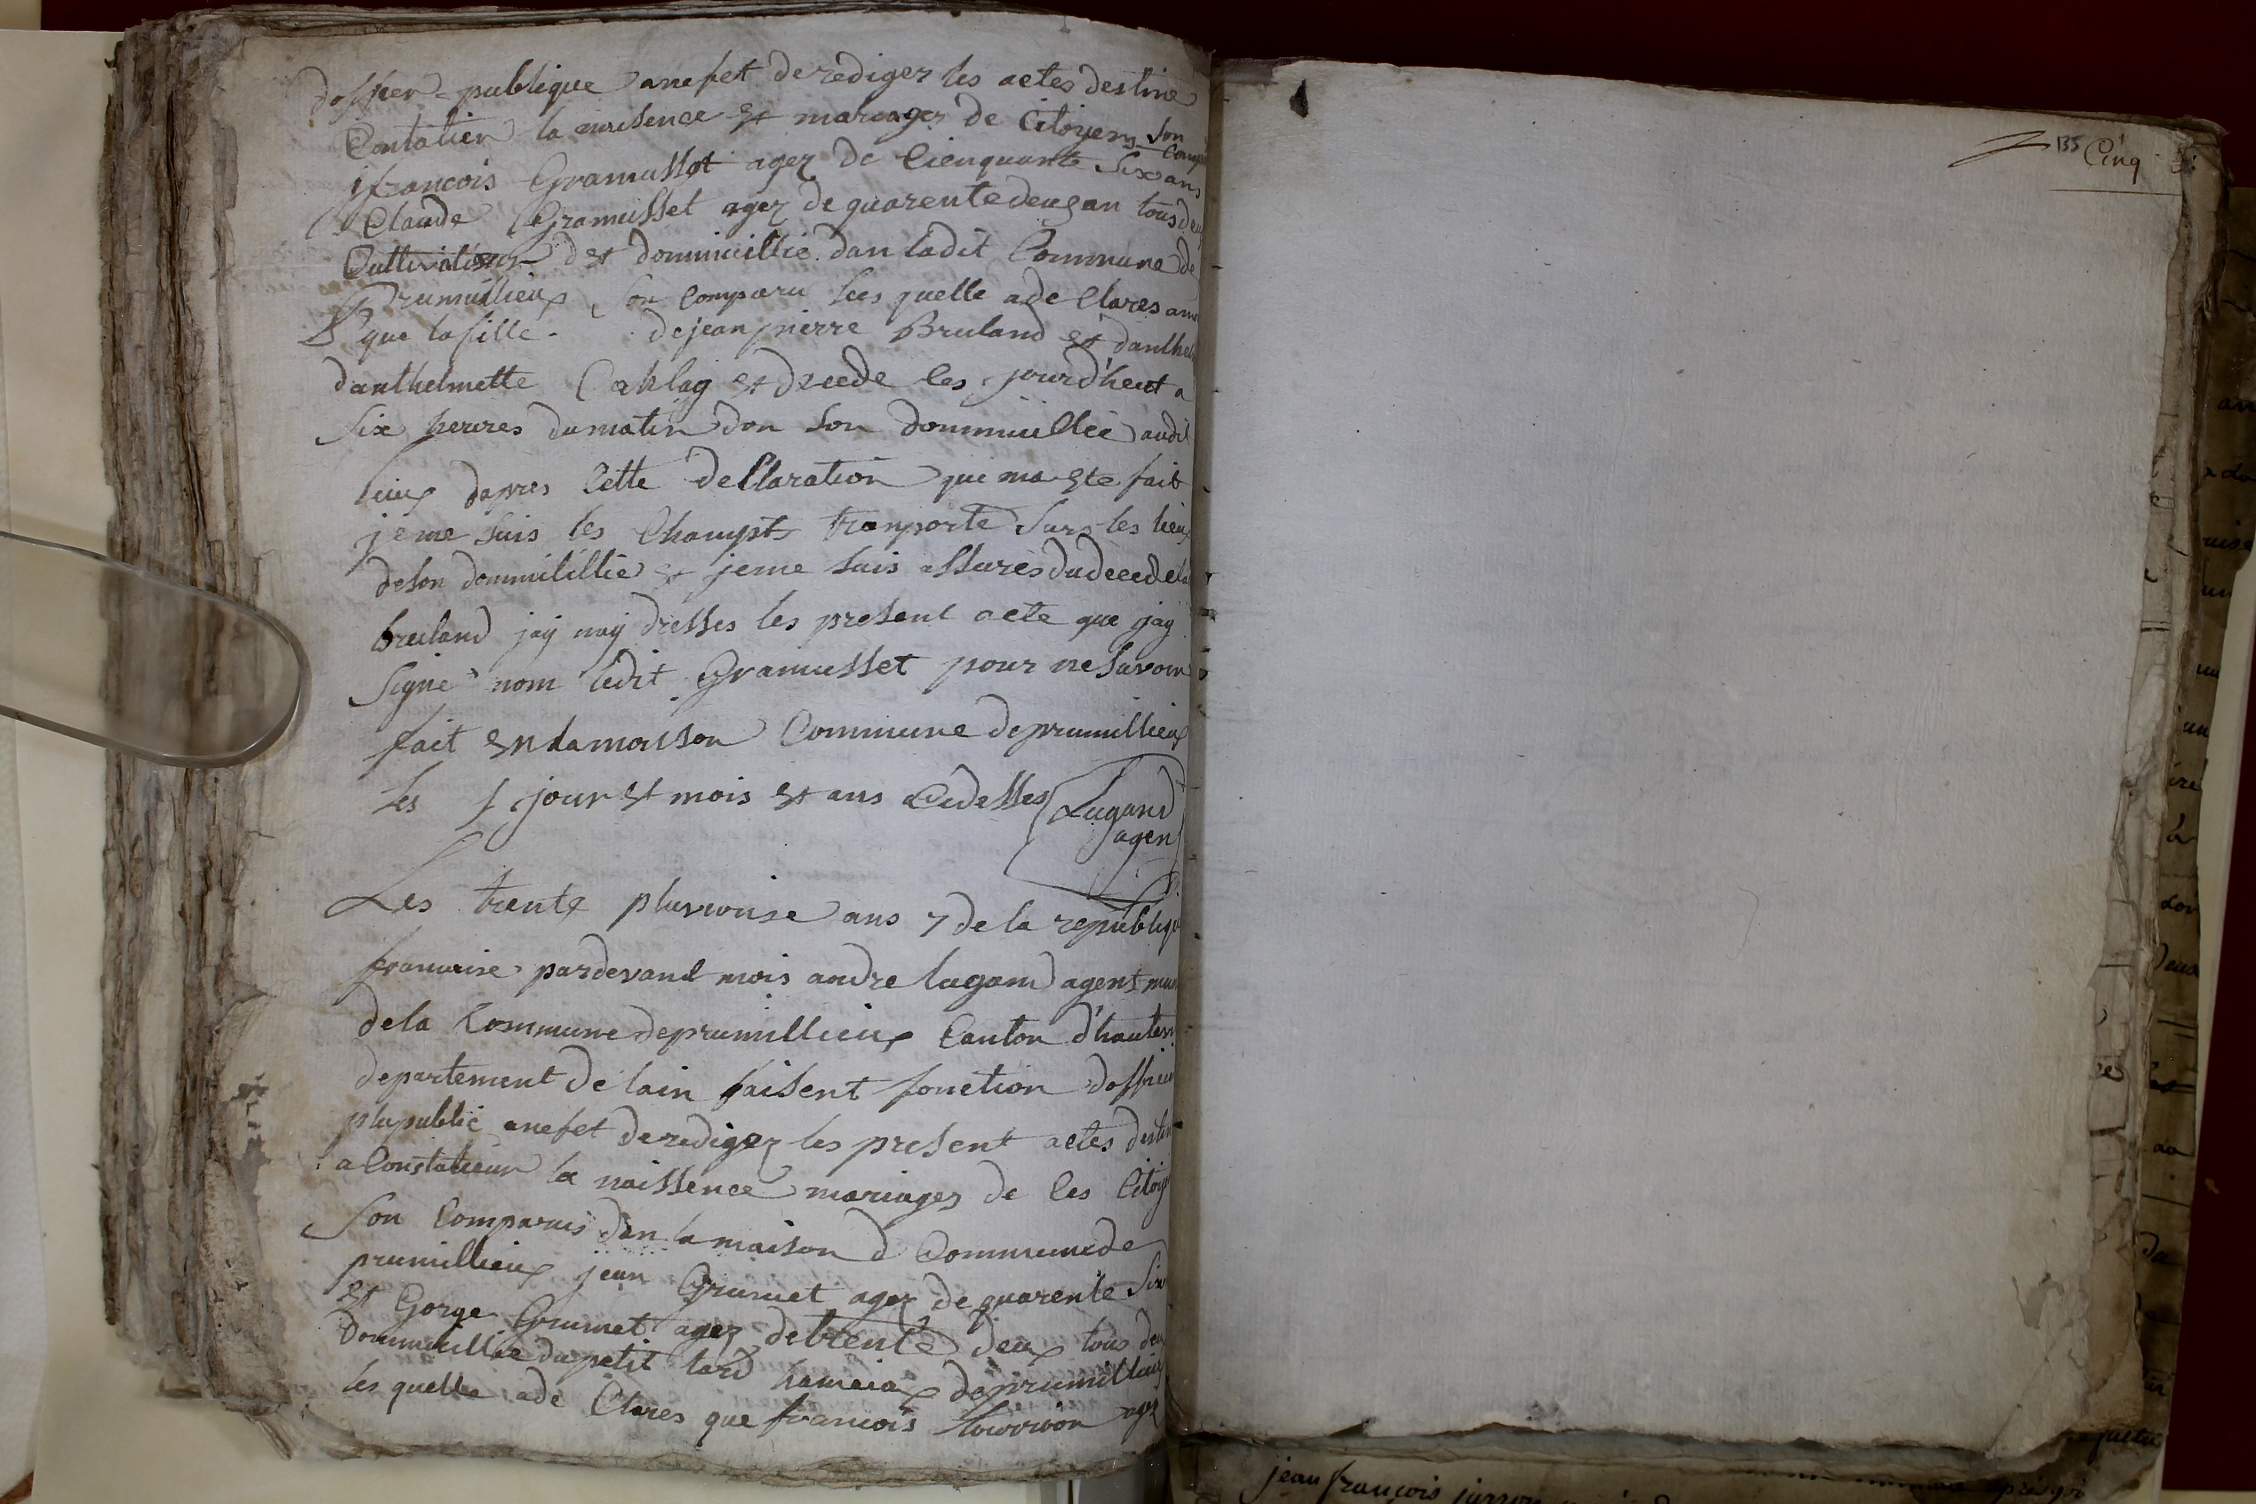 doffier publique anefet de rediger les actes destine
Contatier la nuesence et mariages de Citoyens son Comp
francois Gramusset agez de Cienquante Six ans
Claude Gramusset agez de quarente deux an tous deux
Cultivateur et dommicillie dan ladit Commune de
Prumillieux son Comparu lees quelle a de Clares
que la fille de jean pierre Bruland et danthel
danthelmette et decede les jourd'heut a
Six heures du matin dan son dommicillié audit
lieux dapres Cette declaration qui ma ete fait
je me suis les Champts tranporte Surs les lieux
de son dommicillie et je me suis assures du decede la
bruland jay moy dresses les present acte que jay
Signé nom ledit Gramusset pour ne savoir
fait en la maison Commune de prumillieux
les jour et mois et ans Cidesses Lugand
agen
Les trente pluviouse ans 7 de la republiq
francaise pardevand mois andre lugand agent mun
de la Commune de prumillieux Canton d'hautev
departement de lain faisent fonction doffiei
plu public anefet de rediger les present actes destin
a Constatieur la naissence mariages de les Citoy
Son Comparus dan la maison d Commune de
prumillieux jean Grumet agez de quarente Six
et Gorge Grumet agez de trente deux tous deu
dommicillie du petit lard hameiaux de prumillieux
les quelle a de Clares que francois agez
135 Cinq
jean françois